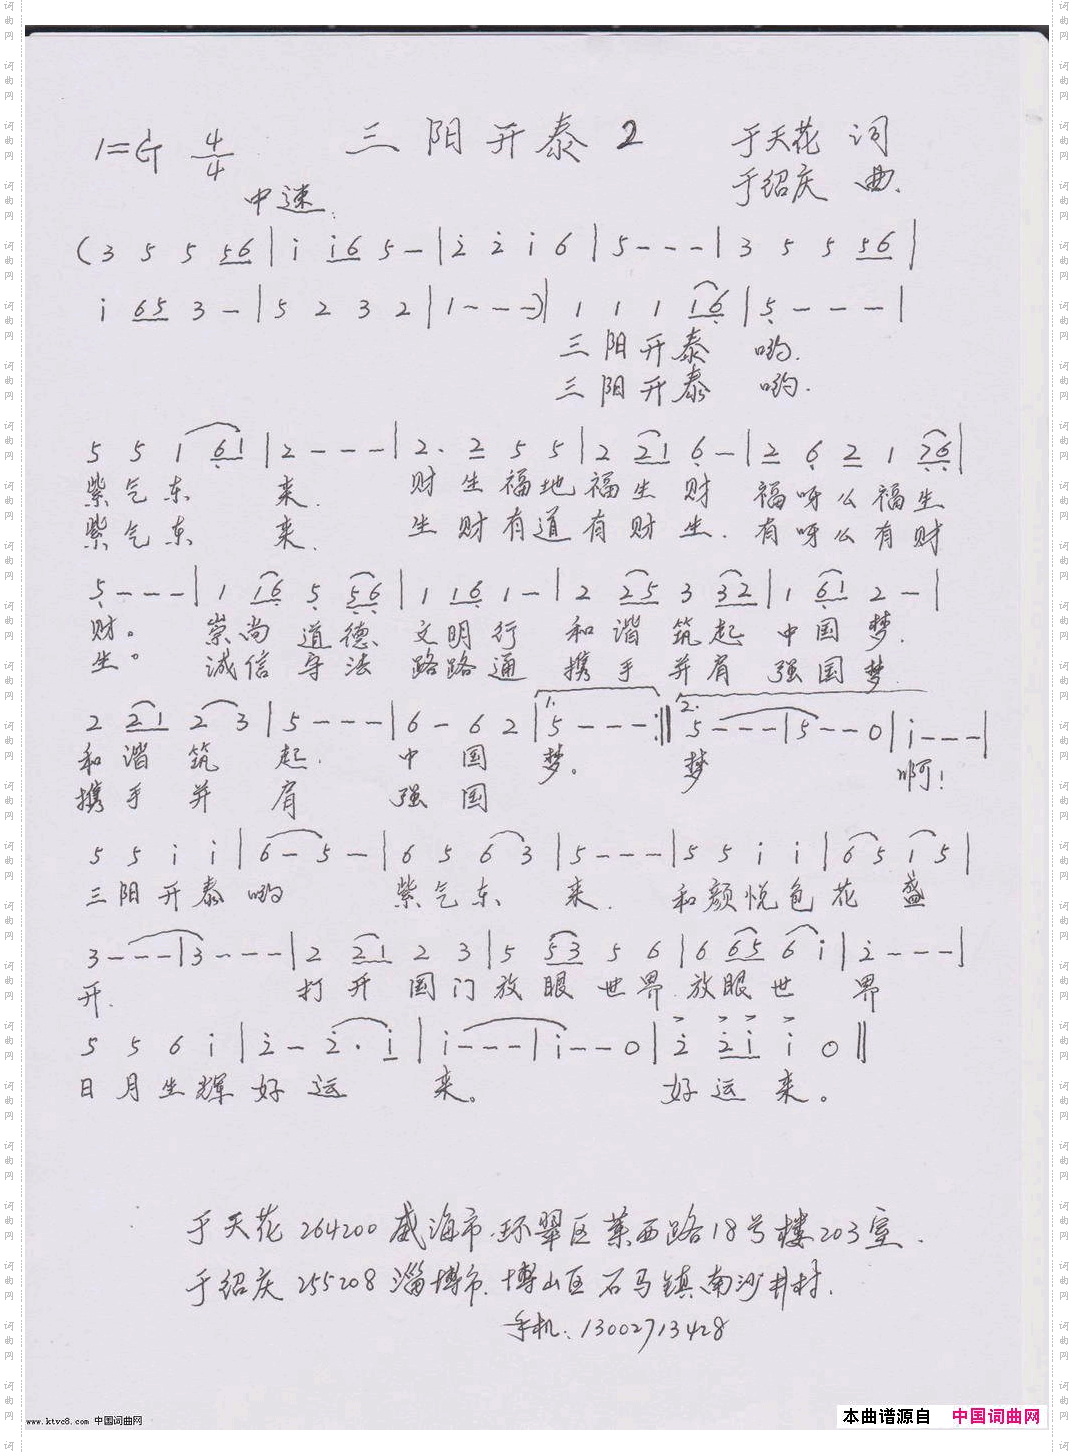 三阳开泰 2
1=G 4/4
于天花 词
于绍庆 曲.
中速.
(3 5 5 56 | i i6 5 - | 2 2 i 6 | 5 - - - | 3 5 5 56 |
i 65 3 - | 5 2 3 2 | 1 - - -) | 1 1 1 16 | 5 - - - |
三阳开泰 哟.
三阳开泰 哟.
5 5 1 61 | 2 - - - | 2. 2 5 5 | 2 21 6 - | 2 6 2 1 26 |
紫气东 来. 财生福地福生财 福呀么福生
紫气东 来. 生财有道有财生. 有呀么有财
5 - - - | 1 16 5 56 | 1 16 1 - | 2 25 3 32 | 1 61 2 - |
财。 崇尚道德 文明行 和谐筑起 中国梦.
生。 诚信守法 路路通 携手并肩 强国梦
2 21 2 3 | 5 - - - | 6 - 6 2 | 1. 5 - - - :‖ 2. 5 - - - | 5 - - 0 | i - - - |
和谐筑 起. 中国 梦。 梦 啊!
携手并 肩 强国
5 5 i i | 6 - 5 - | 6 5 6 3 | 5 - - - | 5 5 i i | 6 5 i 5 |
三阳开泰哟 紫气东 来. 和颜悦色花 盛
3 - - - | 3 - - - | 2 21 2 3 | 5 53 5 6 | 6 65 6 i | 2 - - - |
开. 打开国门放眼世界.放眼世 界
5 5 6 i | 2 - 2. i | i - - - | i - - 0 | 2 2i i 0 ‖
日月生辉好运 来。 好运来。
于天花 264200 威海市.环翠区莱西路18号楼203室.
于绍庆 255208 淄博市.博山区石马镇南沙井村.
手机:13002713428
www.ktvc8.com 中国词曲网
本曲谱源自 中国词曲网